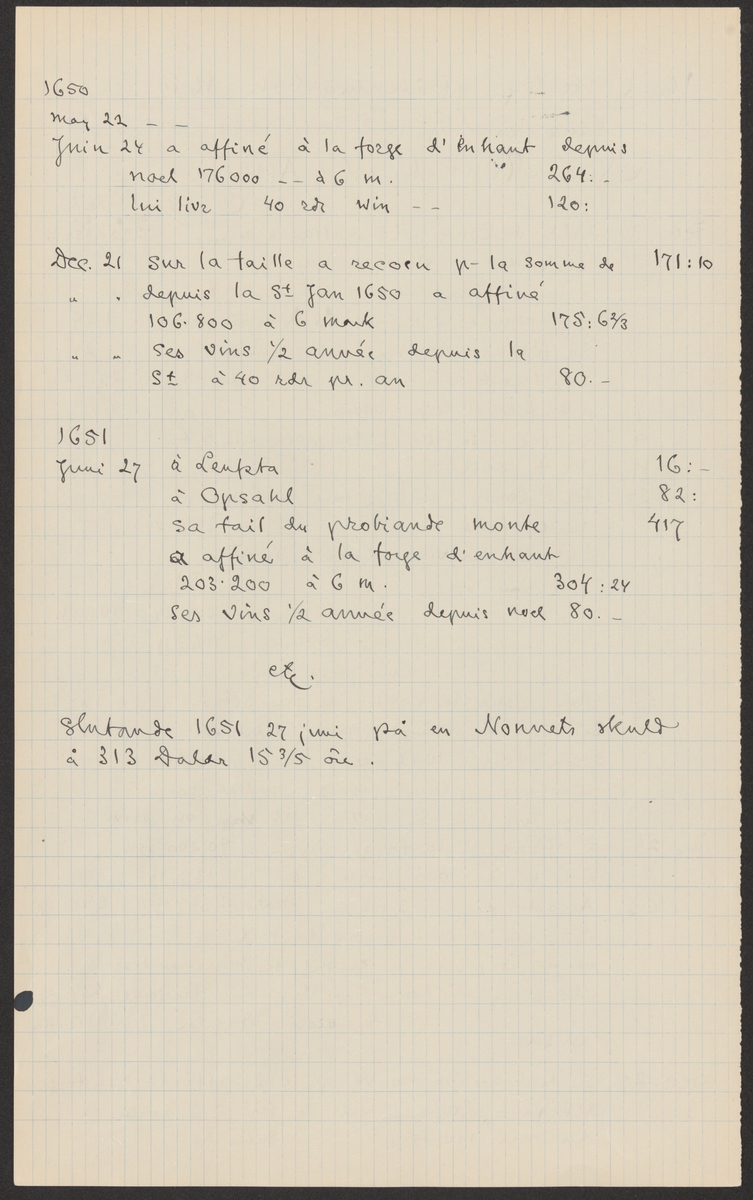 1650
May 22 – –
Juin 24 a affiné à la forge d'enhaut depuis
noel 176000 -- à 6 m. 264: -
lui livr 40 rdr win - - 120:
Dec. 21 sur la taille a recoeu p- la somme de 171:10
" . depuis la St Jan 1650 a affiné
106.800 à 6 mark 175:6 2/3
" " ses vins 1/2 année depuis la
St à 40 rdr pr. an 80. -
1651
Juni 27 à Leufsta 16: -
à Opsahl 82:
sa tail du probiande monte 417
a affiné à la forge d'enhaut
203.200 à 6 m. 304:24
ses vins 1/2 année depuis noel 80. -
etc.
Slutande 1651 27 juni på en Nonnets skuld
å 313 Daler 15 3/5 öre.